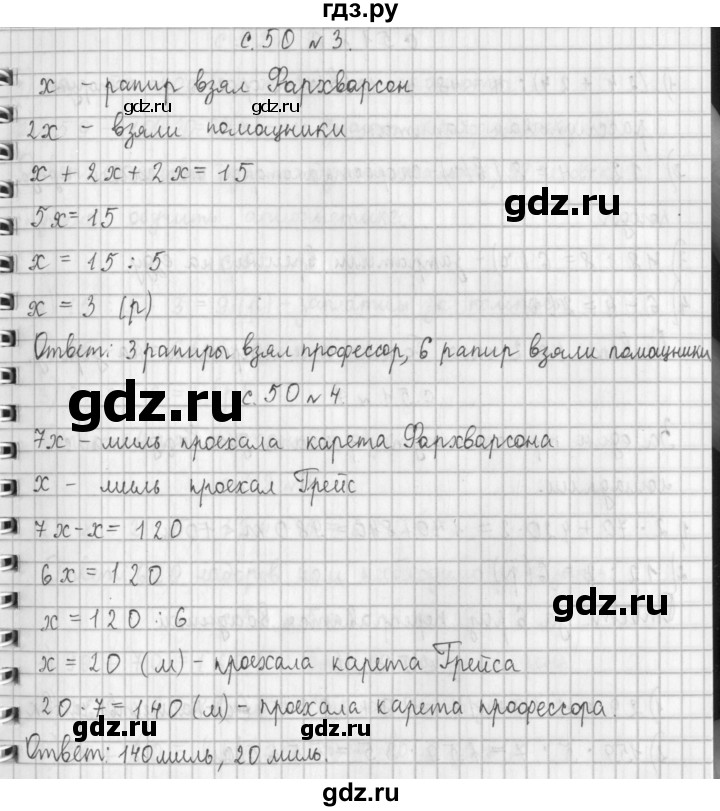 гдз.ру
с. 50 № 3.
х - рапир взял Фархварсон
gdz.ru gdz.ru
2х - взяли помощники
х + 2х + 2х = 15
gdz.ru
5х = 15
х = 15 : 5
х = 3 (р)
Ответ: 3 рапиры взял профессор, 6 рапир взяли помощники
gdz.ru
с. 50 № 4.
7х - миль проехала карета Фархварсона
х - миль проехал Грейс
7х - х = 120
6х = 120
gdz.ru
х = 120 : 6
х = 20 (м) - проехала карета Грейса
20 · 7 = 140 (м) - проехала карета профессора.
gdz.ru gdz.ru
Ответ: 140 миль, 20 миль.